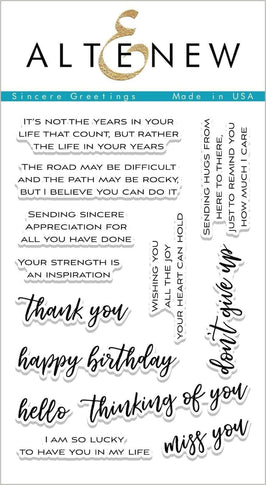 ALTENEW
Sincere Greetings Made in USA
IT'S NOT THE YEARS IN YOUR
LIFE THAT COUNT, BUT RATHER
THE LIFE IN YOUR YEARS
THE ROAD MAY BE DIFFICULT
AND THE PATH MAY BE ROCKY,
BUT I BELIEVE YOU CAN DO IT
SENDING SINCERE
APPRECIATION FOR
ALL YOU HAVE DONE
YOUR STRENGTH IS
AN INSPIRATION
WISHING YOU
ALL THE JOY
YOUR HEART CAN HOLD
SENDING HUGS FROM
HERE TO THERE,
JUST TO REMIND YOU
HOW MUCH I CARE
don't give up
thank you
happy birthday
hello
thinking of you
miss you
I AM SO LUCKY
TO HAVE YOU IN MY LIFE